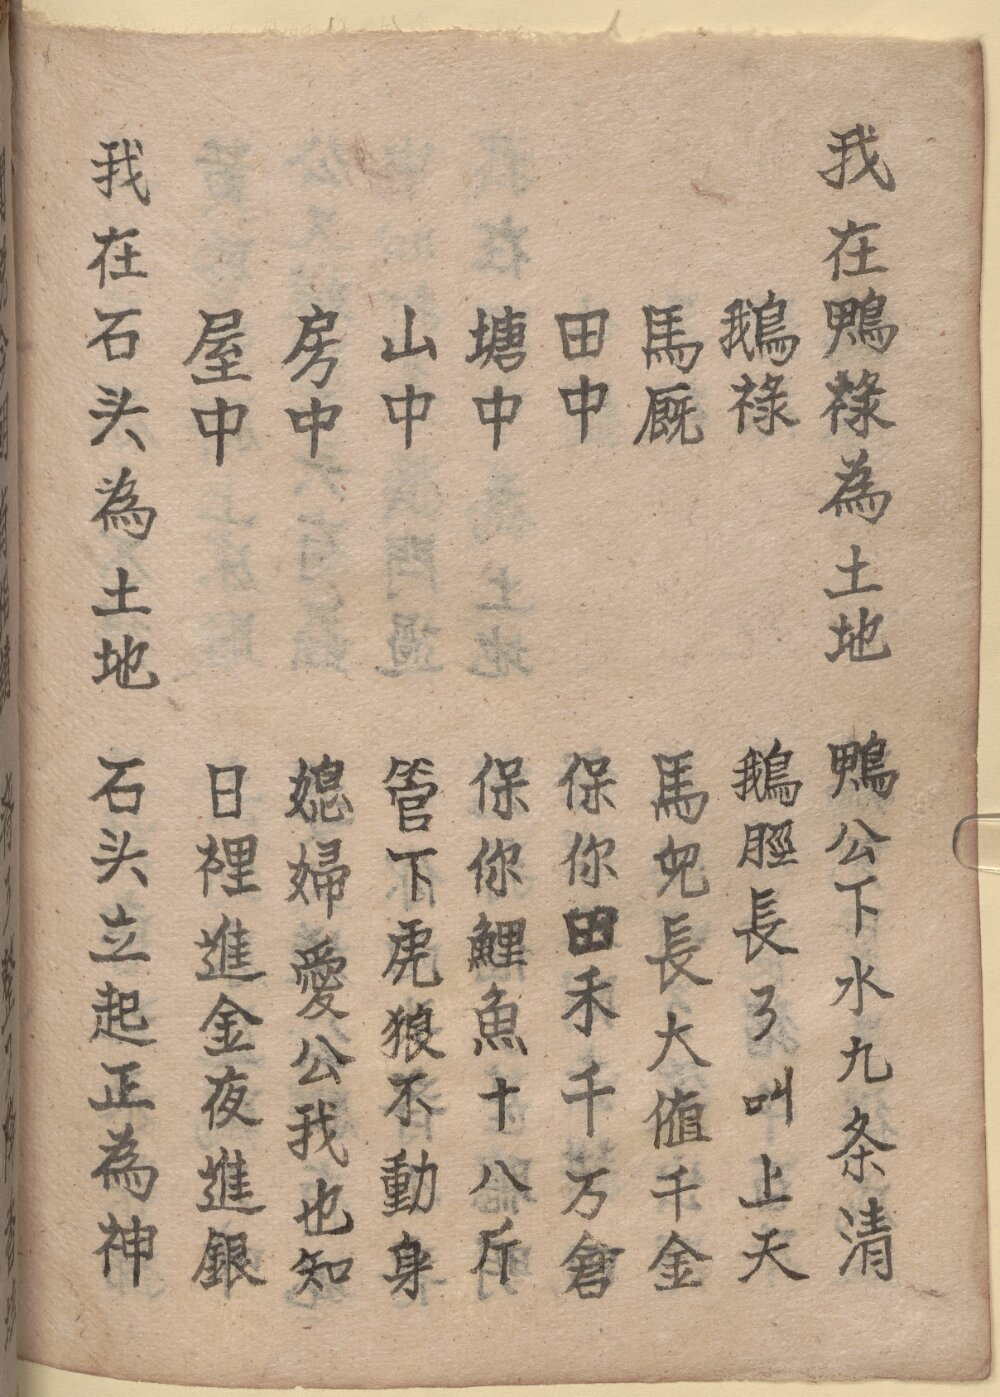 我在鴨祿為土地 鴨公下水九条清
鵝祿 鵝脛長了叫上天
馬厩 馬兒長大值千金
田中 保你田禾千万倉
塘中 保你鯉魚十八斤
山中 管下虎狼不動身
房中 媳婦愛公我也知
屋中 日裡進金夜進銀
我在石头為土地 石头立起正為神